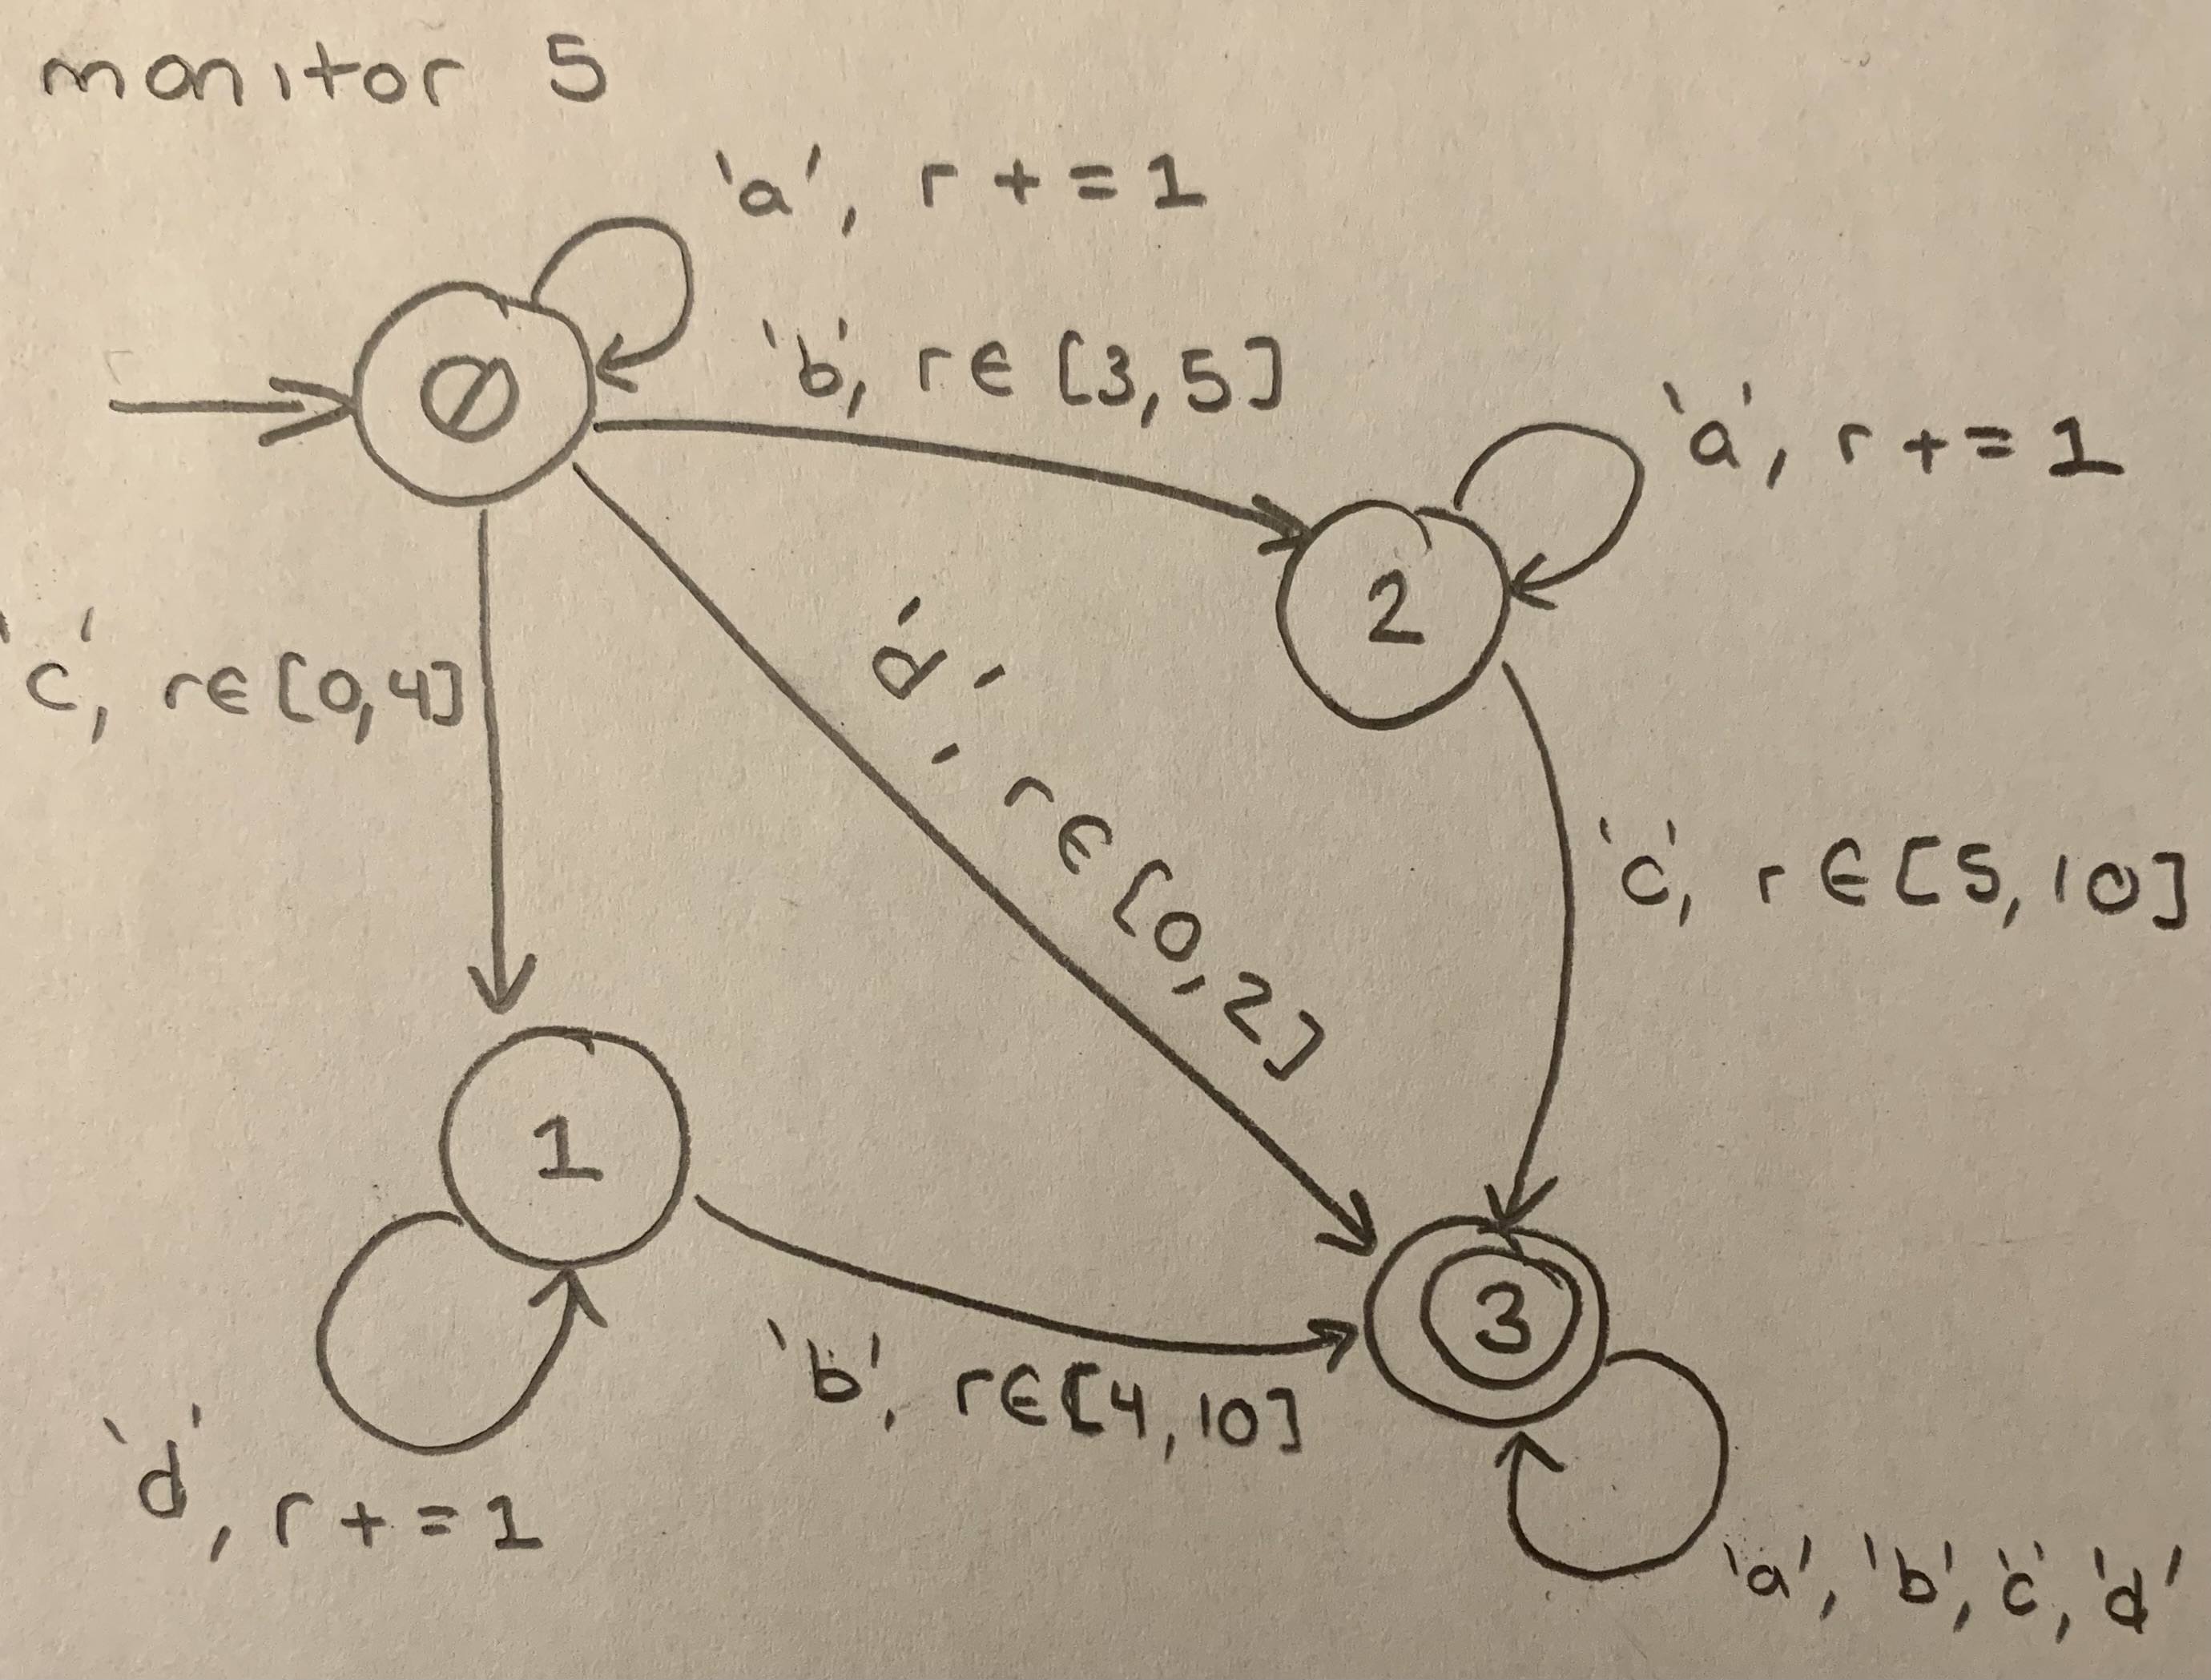 monitor 5
'a', r += 1
'b', r∈[3,5]
0
'a', r += 1
2
'c', r∈[0,4]
'd', r∈[0,2]
'c', r∈[5,10]
1
3
'b', r∈[4,10]
'd', r += 1
'a', 'b', 'c', 'd'